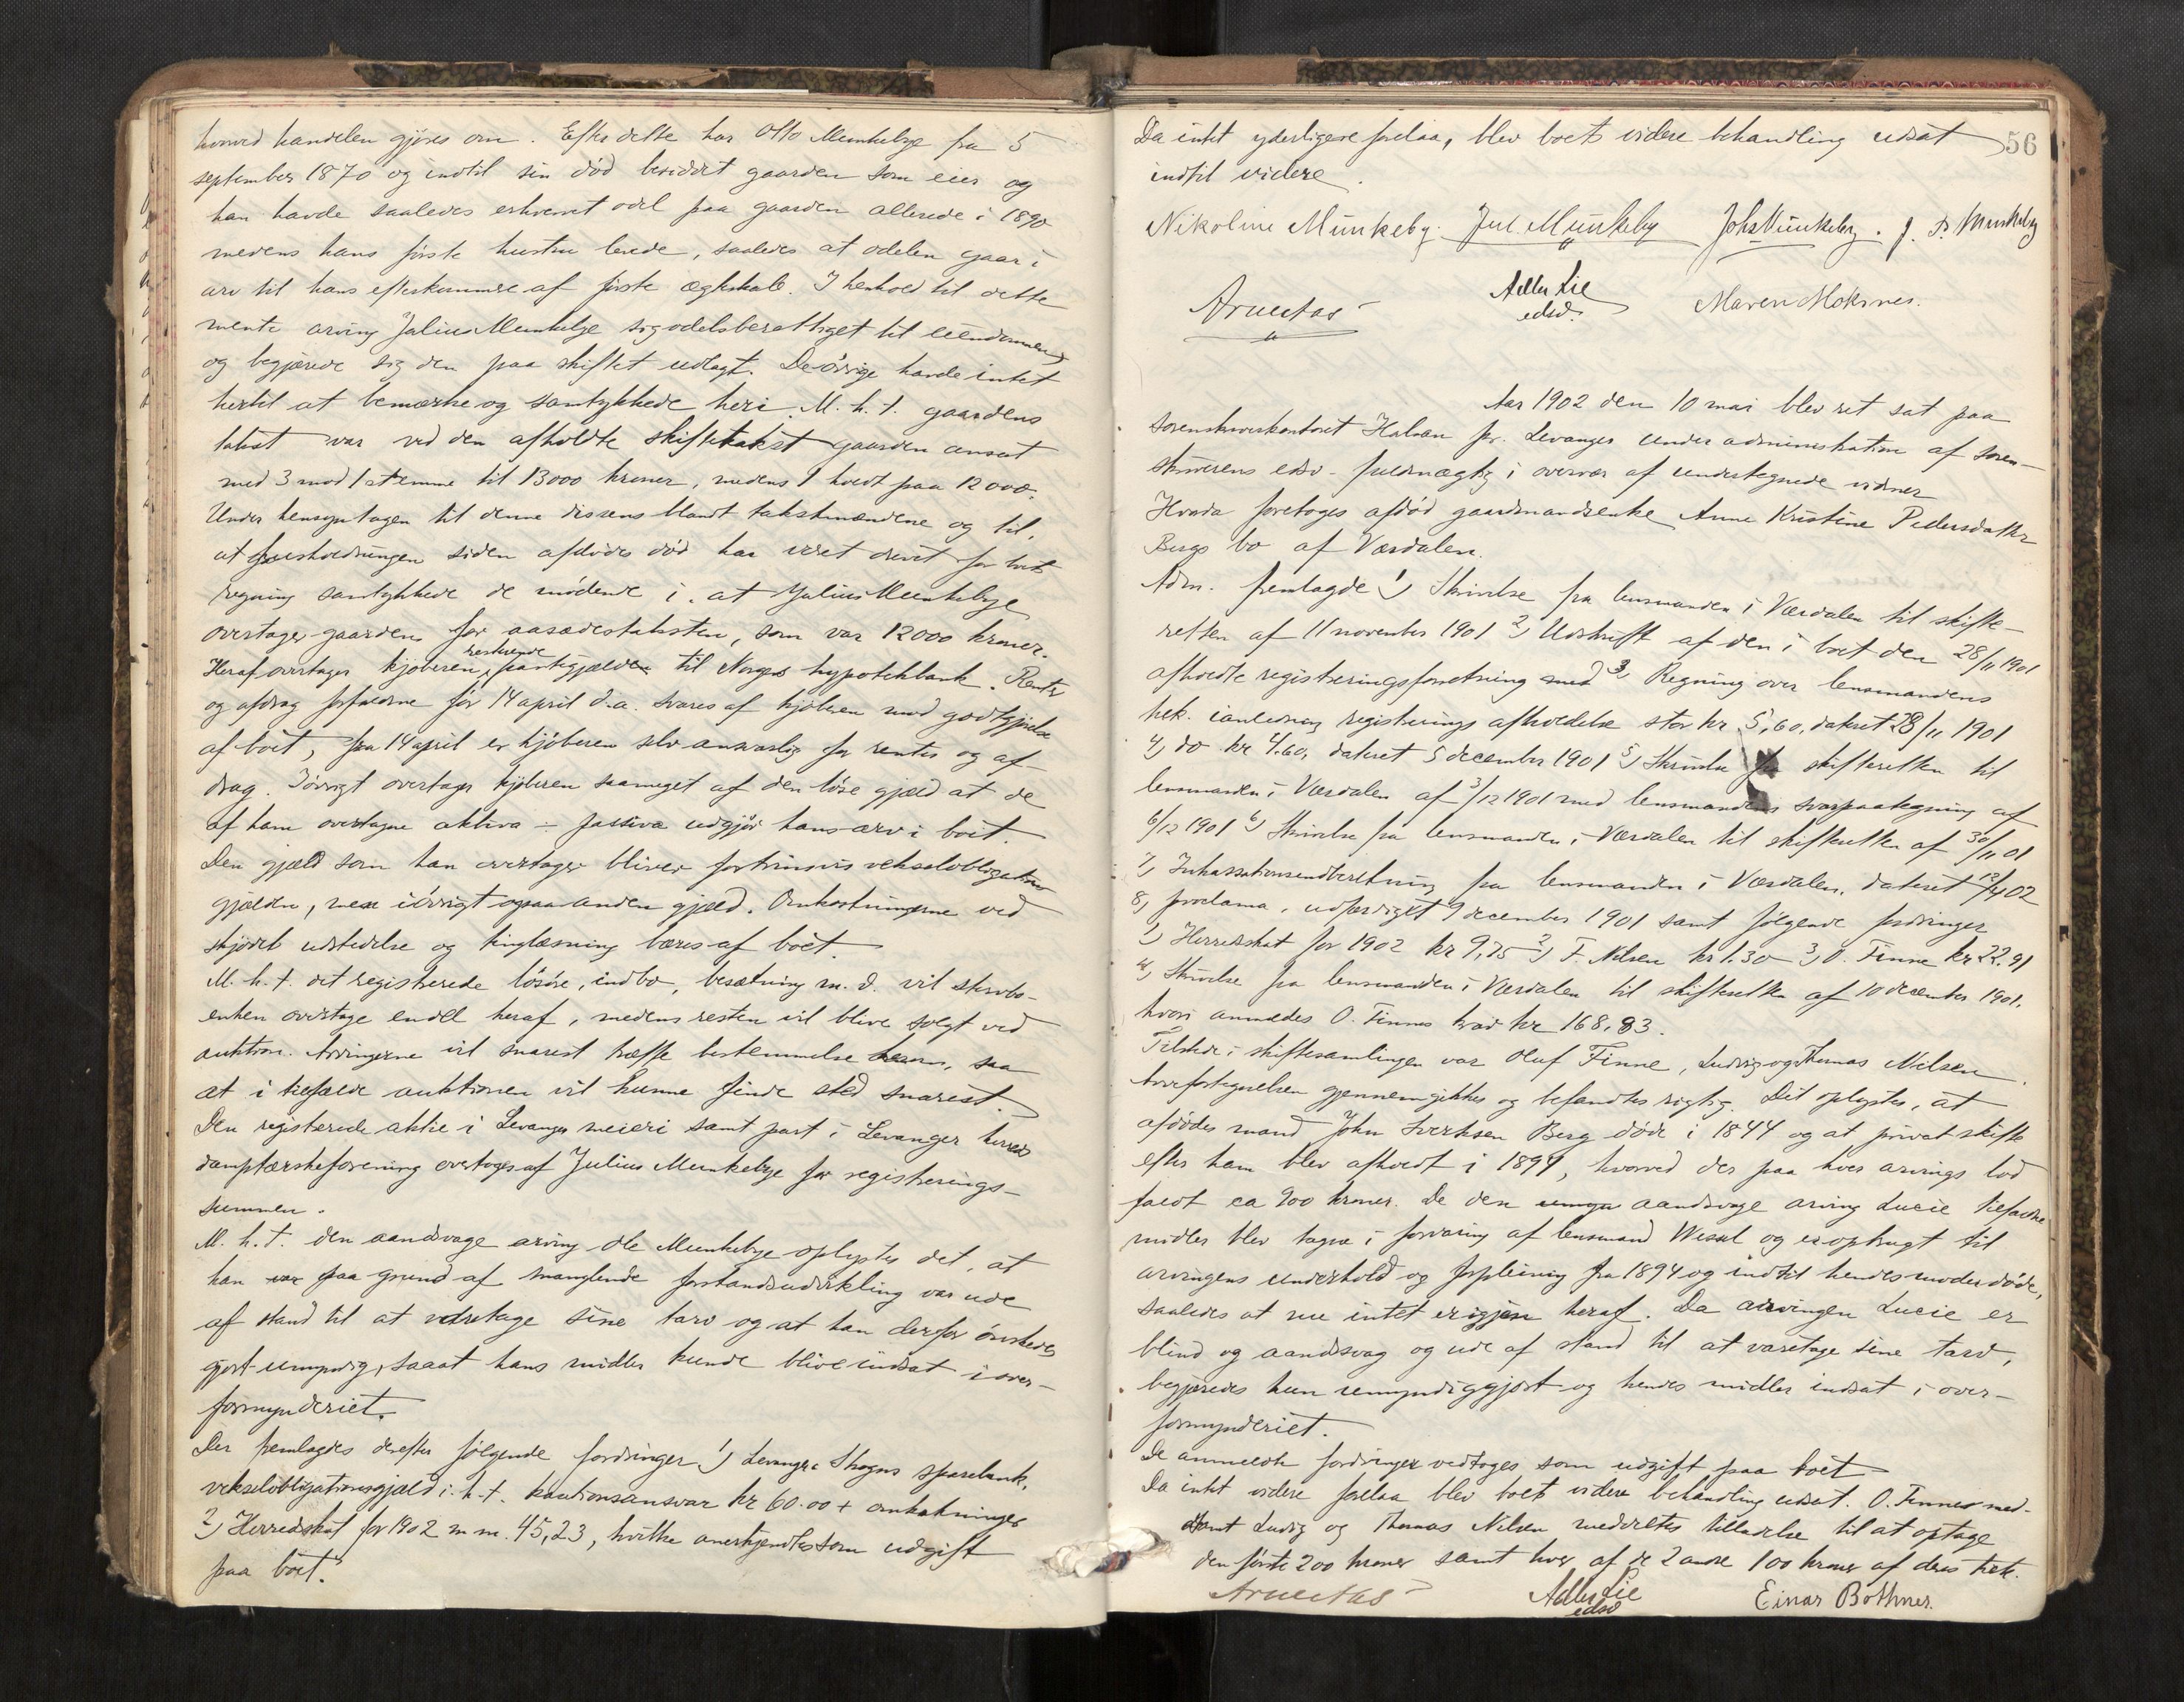 hvorved handelen gjøres om. Efter dette har Otto Munkebye fra 5
september 1870 og indtil sin død besiddet gaarden som eier og
han havde saaledes erhvervet odel paa gaarden allerede i 1890
medens hans første hustru levede, saaledes at odelen gaar i
arv til hans efterkommere af første ægteskab. I henhold til dette
mente arving Julius Munkebye sig odelsberettiget til eiendommen
og begjærede sig den paa skiftet udlagt. De øvrige havde intet
hertil at bemærke og samtykkede heri. M. h. t. gaardens
takst var ved den afholdte skiftetakst gaarden ansat
med 3 mod 1 stemme til 13000 kroner, medens 1 holdt paa 12000.
Under hensyntagen til denne dissens blandt takstmændene og til,
at husholdningen siden afdødes død har været drevet for boets
regning samtykkede de mødende i, at Julius Munkebye
overtager gaarden for aasædestaksten, som var 12000 kroner.
Heraf overtager kjøberen restende pantegjælden til Norges hypothekbank. Renter
og afdrag forfaldne før 14 april d.a. svares af kjøberen mod godtgjørelse
af boet, fra 14 april er kjøberen selv ansvarlig for renter og af-
drag. Iøvrigt overtager kjøberen saameget af den løse gjæld at de
af ham overtagne aktiva ÷ passiva udgjør hans arv i boet.
Den gjæld som han overtager bliver fortrinsvis vekselobligations
gjælden, men iøvrigt ogsaa anden gjæld. Omkostningerne ved
skjødets udstedelse og tinglæsning bæres af boet.
M. h. t. det registrerede løsøre, indbo, besætning m. v. vil stervbo-
enken overtage endel heraf, medens resten vil blive solgt ved
auktion. Arvingerne vil snarest træffe bestemmelse herom, saa
at i tilfælde auktionen vil kunne finde sted snarest.
Den registrerede aktie i Levanger meieri samt part i Levanger herreds
damptærskeforening overtoges af Julius Munkebye for registrerings-
summen.
M. h. t. den aandsvage arving Ole Munkebye oplystes det, at
han paa grund af manglende forstandsudvikling var ude
af stand til at varetage sine tarv og at han derfor ønskedes
gjort umyndig, saaat hans midler kunde blive indsat i over-
formynderiet.
Der fremlagdes derefter følgende fordringer 1) Levanger & Skogns sparebank,
vekselobligationsgjæld i. h. t. kautionsansvar kr 60.00 + omkostninger
2) Herredskat for 1902 m m. 45,23, hvilke anerkjendtes som udgift
paa boet.
56
Da intet yderligere forelaa, blev boets videre behandling udsat
indtil videre.
Nikoline Munkeby. Jul. Munkeby Johs Munkeby. J. P. Munkeby
Arnestas Adler Lie Maren Moksnes.
edsv.
Aar 1902 den 10 mai blev ret sat paa
sorenskriverkontoret Halsan pr. Levanger under administration af soren-
skriverens edsv. fuldmægtig i overvær af undertegnede vidner
Hvorda foretoges afdød gaardmandsenke Anne Kristine Pedersdatter
Bergs bo af Værdalen.
Adm. fremlagde 1) Skrivelse fra lensmanden i Værdalen til skifte-
retten af 11 november 1901 2) Udskrift af den i boet den 28/11 1901
afholdte registreringsforretning med 3) Regning over lensmandens
tilk. i anledning registrerings afholdelse stor kr 5,60, dateret 28/11 1901
4) do kr 4.60, dateret 5 december 1901 5) Skrivelse fra skifteretten til
lensmanden i Værdalen af 3/12 1901 med lensmandens svarpaategning af
6/12 1901 6) Skrivelse fra lensmanden i Værdalen til skifteretten af 30/11 01
7) Inkassationsindberetning fra lensmanden i Værdalen, dateret 12/4 02
8) proclama, udfærdiget 9 december 1901 samt følgende fordringer
1) Herredskat for 1902 kr 9,75 2) F. Nilsen kr 1.30 3) O. Finne kr 22.91
4) Skrivelse fra lensmanden i Værdalen til skifteretten af 10 december 1901,
hvori anmeldes O. Finnes krav kr 168,83.
Tilstede i skiftesamlingen var Oluf Finne, Ludvig og Thomas Nilsen.
Arvefortegnelsen gjennemgikkes og befandtes rigtig. Det oplystes, at
afdødes mand John Sverksen Berg døde i 1844 og at privat skifte
efter ham blev afholdt i 1894, hvorved der paa hver arvings lod
faldt ca 900 kroner. De den aandsvage arving Lucie tilfaldne
midler blev tagne i forvaring af lensmand Wessel og er opbrugt til
arvingens underhold og forpleining fra 1894 og indtil hendes moder døde,
saaledes at nu intet er igjen heraf. Da arvingen Lucie er
blind og aandssvag og ude af stand til at varetage sine tarv,
begjæredes hun umyndiggjort og hendes midler indsat i over-
formynderiet.
De anmeldte fordringer vedtoges som udgift paa boet
Da intet videre forelaa blev boets videre behandling udsat. O. Finne med-
samt Ludvig og Thomas Nilsen meddeltes tilladelse til at optage
den første 200 kroner samt hver af de 2 andre 100 kroner af deres tilk.
Arnestas Adler Lie Einar Bothner.
edsv